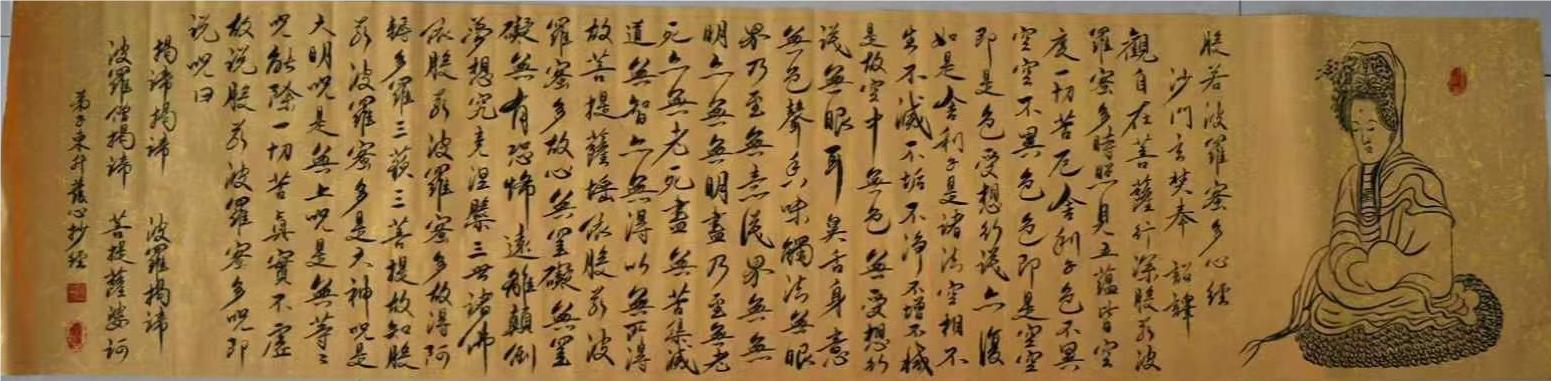 般若波羅蜜多心經
沙門玄奘奉 詔譯
觀自在菩薩行深般若波
羅蜜多時照見五蘊皆空
度一切苦厄舍利子色不異
空空不異色色即是空空
即是色受想行識亦復
如是舍利子是諸法空相不
生不滅不垢不淨不增不減
是故空中無色無受想行
識無眼耳鼻舌身意
無色聲香味觸法無眼
界乃至無意識界無無
明亦無無明盡乃至無老
死亦無老死盡無苦集滅
道無智亦無得以無所得
故菩提薩埵依般若波
羅蜜多故心無罣礙無罣
礙無有恐怖遠離顛倒
夢想究竟涅槃三世諸佛
依般若波羅蜜多故得阿
耨多羅三藐三菩提故知般
若波羅蜜多是大神咒是
大明咒是無上咒是無等々
咒能除一切苦真實不虛
故說般若波羅蜜多咒即
說咒曰
揭諦揭諦 波羅揭諦
波羅僧揭諦 菩提薩婆訶
弟子東升 心抄經